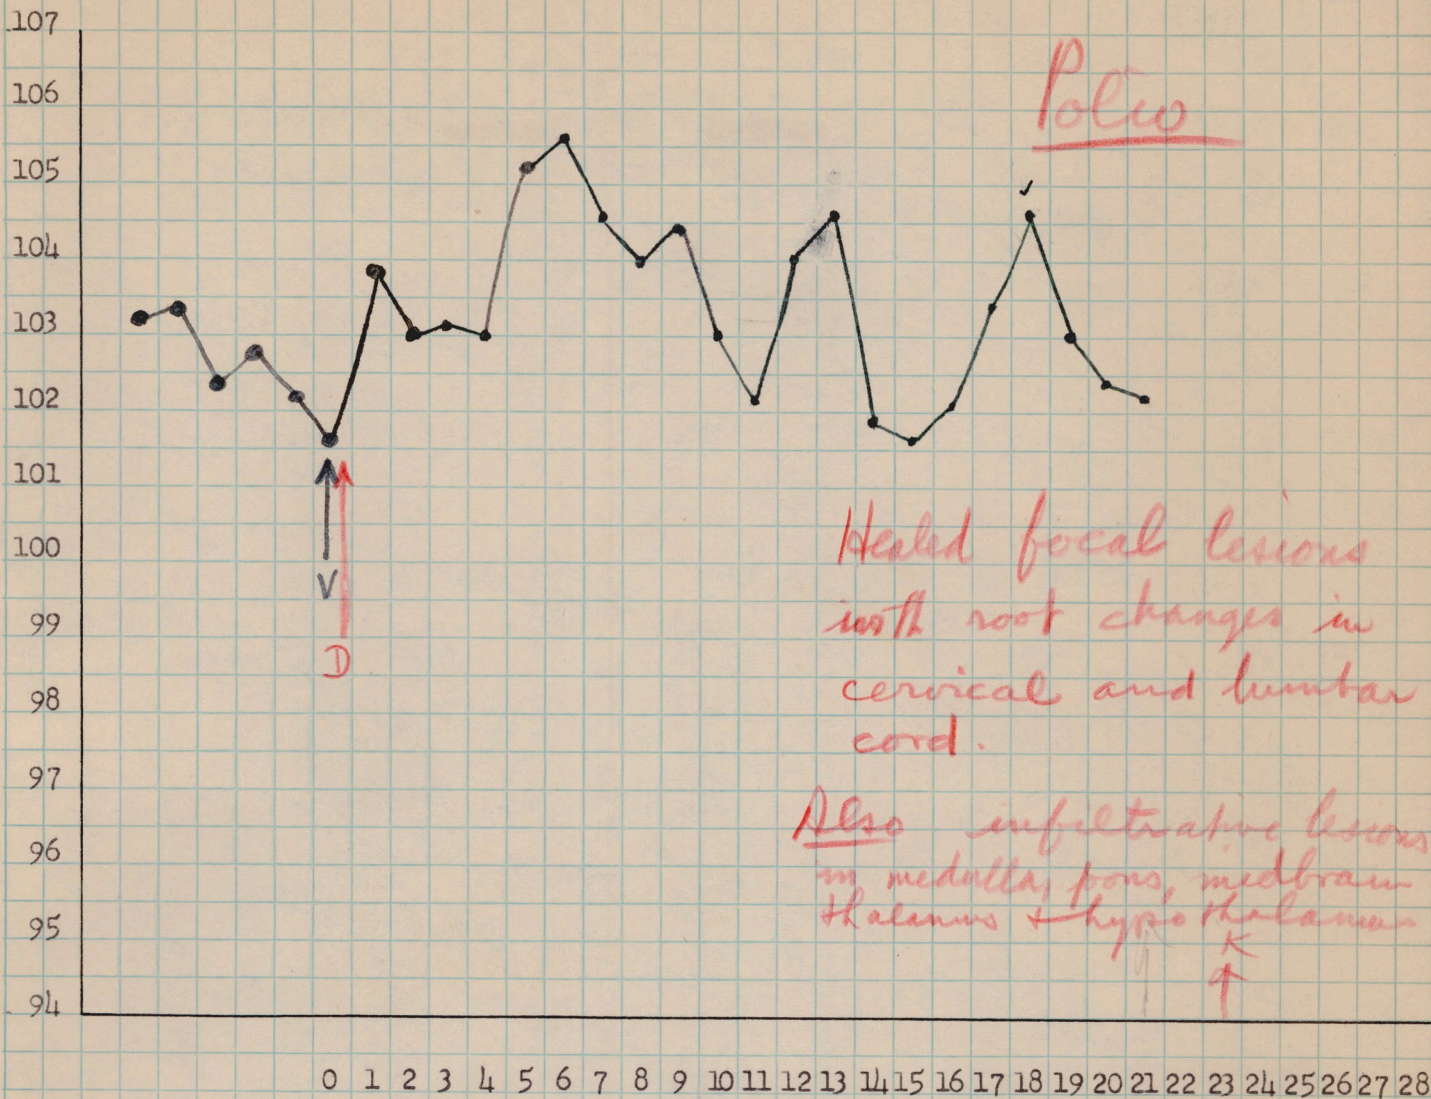 107
106
Polio
105
104
103
102
101
100
V
99
D
98
97
96
95
94
Healed focal lesions
with root changes in
cervical and lumbar
cord.
Also infiltrative lesions
in medulla, pons, midbrain
thalamus + hypothalamus
K
0 1 2 3 4 5 6 7 8 9 10 11 12 13 14 15 16 17 18 19 20 21 22 23 24 25 26 27 28